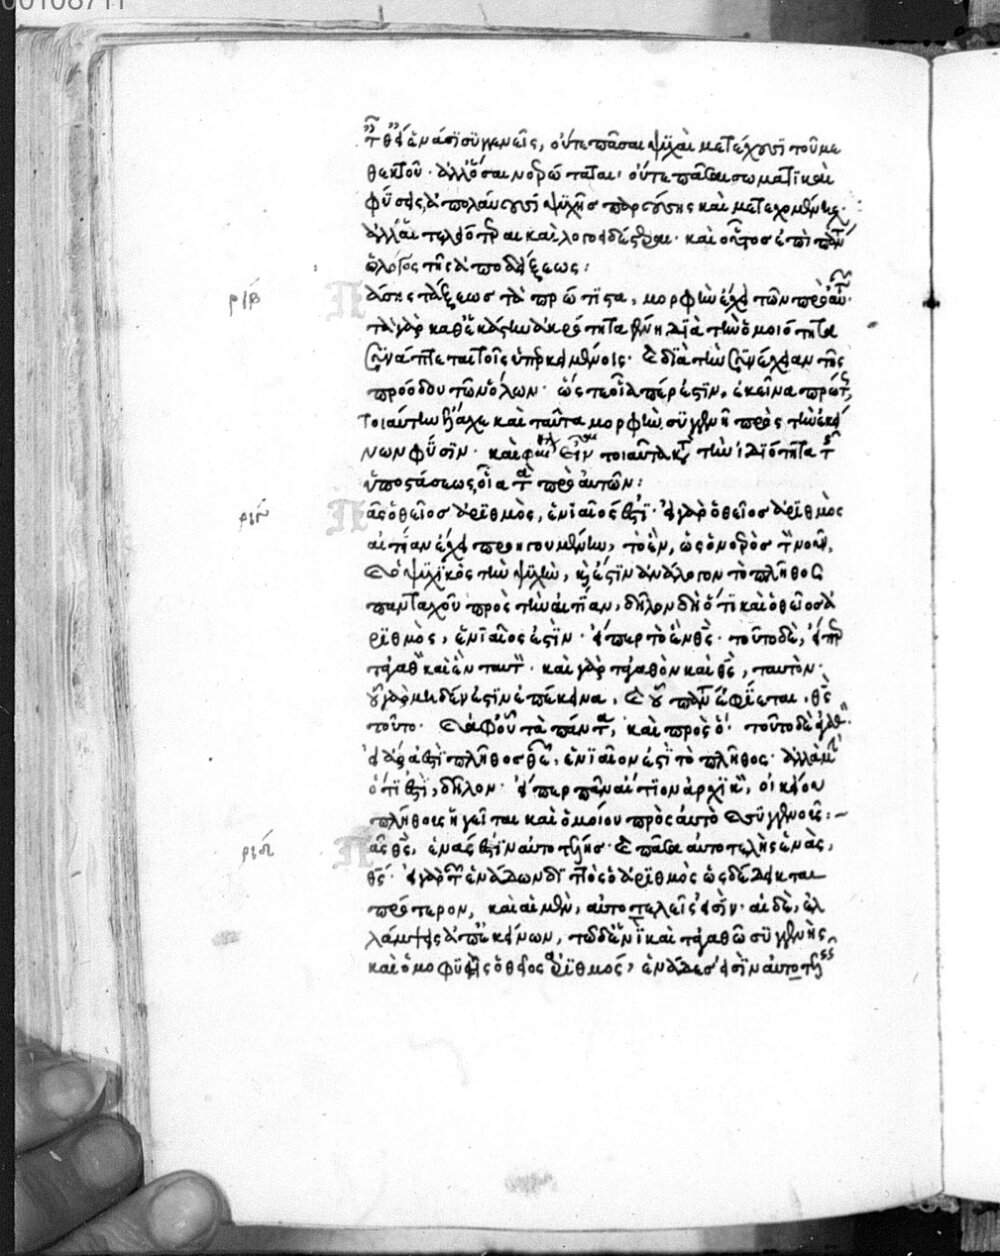 00108711
τ θ ἑνάσι συγγενεῖς, οὔτε πᾶσαι ψυχαὶ μετέχουσι τοῦ με
θεκτοῦ νοῦ· ἀλλ' ὅσαι νοερώταται· οὔτε πᾶσαι σωματικαὶ
φύσεις, ἀπολαύουσι ψυχῆς παρούσης καὶ μετεχομένης·
ἀλλ' αἱ τελεότεραι καὶ λογοειδέστεραι· καὶ οὗτος ἐπὶ πάντων
ὁ λόγος τῆς ἀποδείξεως:
ριβ Πάσης τάξεως τὰ πρώτιστα, μορφὴν ἔχει τῶν πρὸ αὐτῶν·
τὰ γὰρ καθ' ἑκάστην ἀκρότατα γένη, διὰ τὴν ὁμοιότητα
συνάπτεται τοῖς ὑπερκειμένοις· καὶ διὰ τὴν συνέχειαν τῆς
προόδου τῶν ὅλων· ὥστε οἷά πέρ ἐστιν, ἐκεῖνα πρώτως,
τοιαύτην εἴληχε καὶ ταῦτα μορφὴν συγγενῆ πρὸς τὴν ἐκεί
νων φύσιν· καὶ φαίνεται εἶναι τοιαῦτα κατὰ τὴν ἰδιότητα τῆς
ὑποστάσεως, οἷα τὰ πρὸ αὐτῶν:
ριγ Πᾶς ὁ θεῖος ἀριθμὸς, ἑνιαῖός ἐστι· εἰ γὰρ ὁ θεῖος ἀριθμὸς
αἰτίαν ἔχει προηγουμένην, τὸ ἓν, ὡς ὁ νοερὸς τὸν νοῦν,
καὶ ὁ ψυχικὸς τὴν ψυχὴν, καὶ ἔστιν ἀνάλογον τὸ πλῆθος
πανταχοῦ πρὸς τὴν αἰτίαν, δῆλον δὴ ὅτι καὶ ὁ θεῖος ἀ
ριθμὸς, ἑνιαῖος ἐστὶν· εἴπερ τὸ ἓν θεὸς· τοῦτο δὲ, εἴπερ
τἀγαθὸν καὶ ἓν ταυτὸν· καὶ γὰρ τἀγαθὸν καὶ θεὸς, ταυτὸν·
οὗ γὰρ μηδέν ἐστιν ἐπέκεινα, καὶ οὗ πάντα ἐφίεται, θεὸς
τοῦτο· καὶ ἀφ' οὗ τὰ πάντα, καὶ πρὸς ὅ· τοῦτο δὲ ἀγαθόν·
εἰ ἄρα ἐστὶ πλῆθος θεῶν, ἑνιαῖον ἐστὶ τὸ πλῆθος· ἀλλὰ μὴν
ὅτι ἐστὶ, δῆλον· εἴπερ πᾶν αἴτιον ἀρχικὸν, οἰκείου
πλήθους ἡγεῖται καὶ ὁμοίου πρὸς αὐτὸ καὶ συγγενοῦς:-
ριδ Πᾶς θεὸς, ἑνάς ἐστιν αὐτοτελής· καὶ πᾶσα αὐτοτελὴς ἑνὰς,
θεός· εἰ γὰρ τῶν ἑνάδων διττὸς ὁ ἀριθμὸς ὡς δέδεικται
πρότερον, καὶ αἱ μὲν, αὐτοτελεῖς εἰσὶν· αἱ δὲ, ἐλ
λάμψεις ἀπ' ἐκείνων, τῷ δὲ ἑνὶ καὶ τἀγαθῷ συγγενὴς
καὶ ὁμοφυὴς ὁ θεῖος ἀριθμός, ἑνάδες εἰσὶν αὐτοτελεῖς